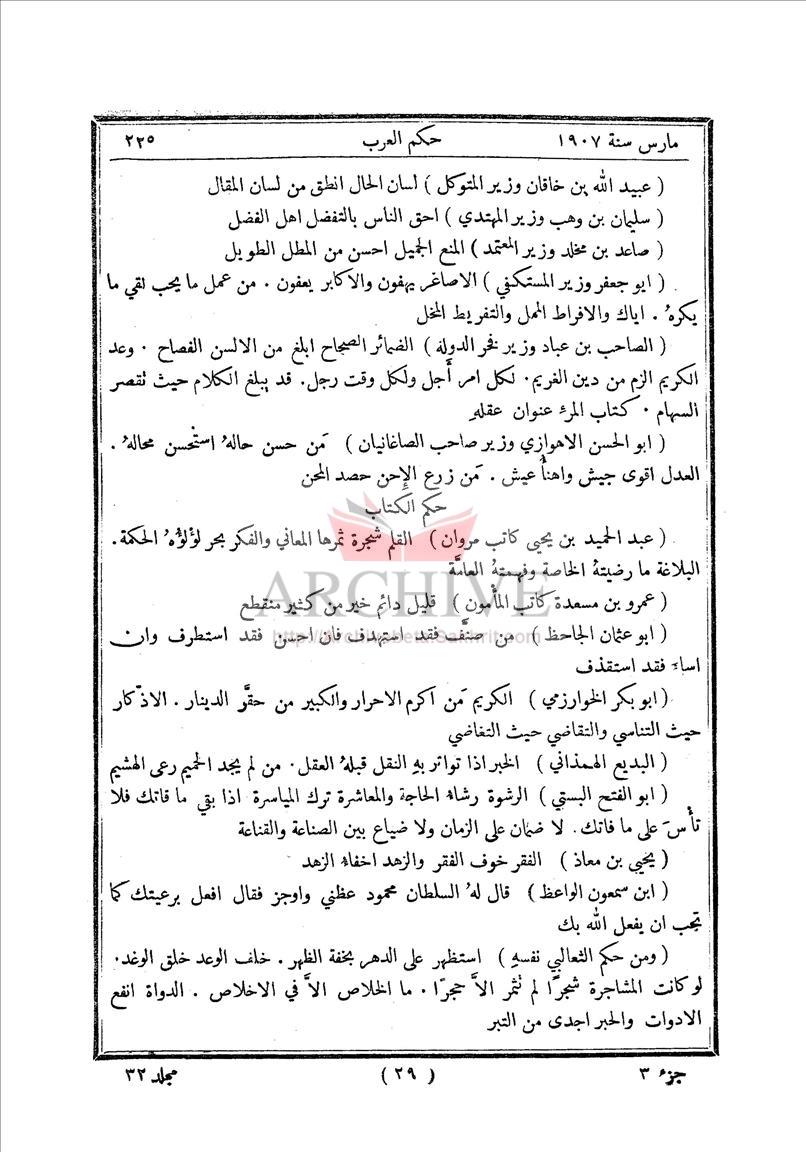 مارس سنة ١٩٠٧ حكم العرب ٢٢٥
( عبيد الله بن خاقان وزير المتوكل ) لسان الحال انطق من لسان المقال
( سليمان بن وهب وزير المهتدي ) احق الناس بالتفضل اهل الفضل
( صاعد بن مخلد وزير المعتمد ) المنع الجميل احسن من المطل الطويل
( ابو جعفر وزير المستكفي ) الاصاغر يهفون والاكابر يعفون . من عمل ما يحب لقي ما
يكرهُ . اياك والافراط الممل والتفريط المخل
( الصاحب بن عباد وزير فخر الدولة ) الضمائر الصحاح ابلغ من الالسن الفصاح . وعد
الكريم الزم من دين الغريم. لكل امر أجل ولكل وقت رجل. قد يبلغ الكلام حيث تقصر
السهام . كتاب المرء عنوان عقلهِ
( ابو الحسن الاهوازي وزير صاحب الصاغانيان ) مَن حسن حالهُ استُحسن محالهُ .
العدل اقوى جيش واهنأُ عيش . مَن زرع الإِحن حصد المحن
حكم الكتاب
( عبد الحميد بن يحيى كاتب مروان ) القلم شجرة ثمرها المعاني والفكر بحر لؤلؤهُ الحكمة .
البلاغة ما رضيتهُ الخاصة وفهمتهُ العامَّة
( عمرو بن مسعدة كاتب المأمون ) قليل دائم خير من كثير منقطع
( ابو عثمان الجاحظ ) من صنَّف فقد استهدف فان احسن فقد استطرف وان
اساء فقد استقذف
( ابو بكر الخوارزمي ) الكريم مَن اكرم الاحرار والكبير من حقَّر الدينار . الاذكار
حيث التناسي والتقاضي حيث التغاضي
( البديع الهمذاني ) الخبر اذا تواتر بهِ النقل قبلهُ العقل. من لم يجد الحميم رعى الهشيم
( ابو الفتح البستي ) الرشوة رشاءُ الحاجة والمعاشرة ترك المياسرة اذا بقي ما قاتك فلا
تأْسَ على ما فاتك. لا ضمان على الزمان ولا ضياع بين الصناعة والقناعة
( يحيى بن معاذ ) الفقر خوف الفقر والزهد اخفاءُ الزهد
( ابن سمعون الواعظ ) قال لهُ السلطان محمود عظني واوجز فقال افعل برعيتك كما
تحب ان يفعل الله بك
( ومن حكم الثعالبي نفسهِ ) استظهر على الدهر بخفة الظهر . خلف الوعد خلق الوغد.
لو كانت المشاجرة شجرًا لم تثمر الاَّ حجرًا . ما الخلاص الاَّ في الاخلاص . الدواة انفع
الادوات والحبر اجدى من التبر
جزء ٣ ( ٢٩ ) مجلد ٣٢
ARCHIVE